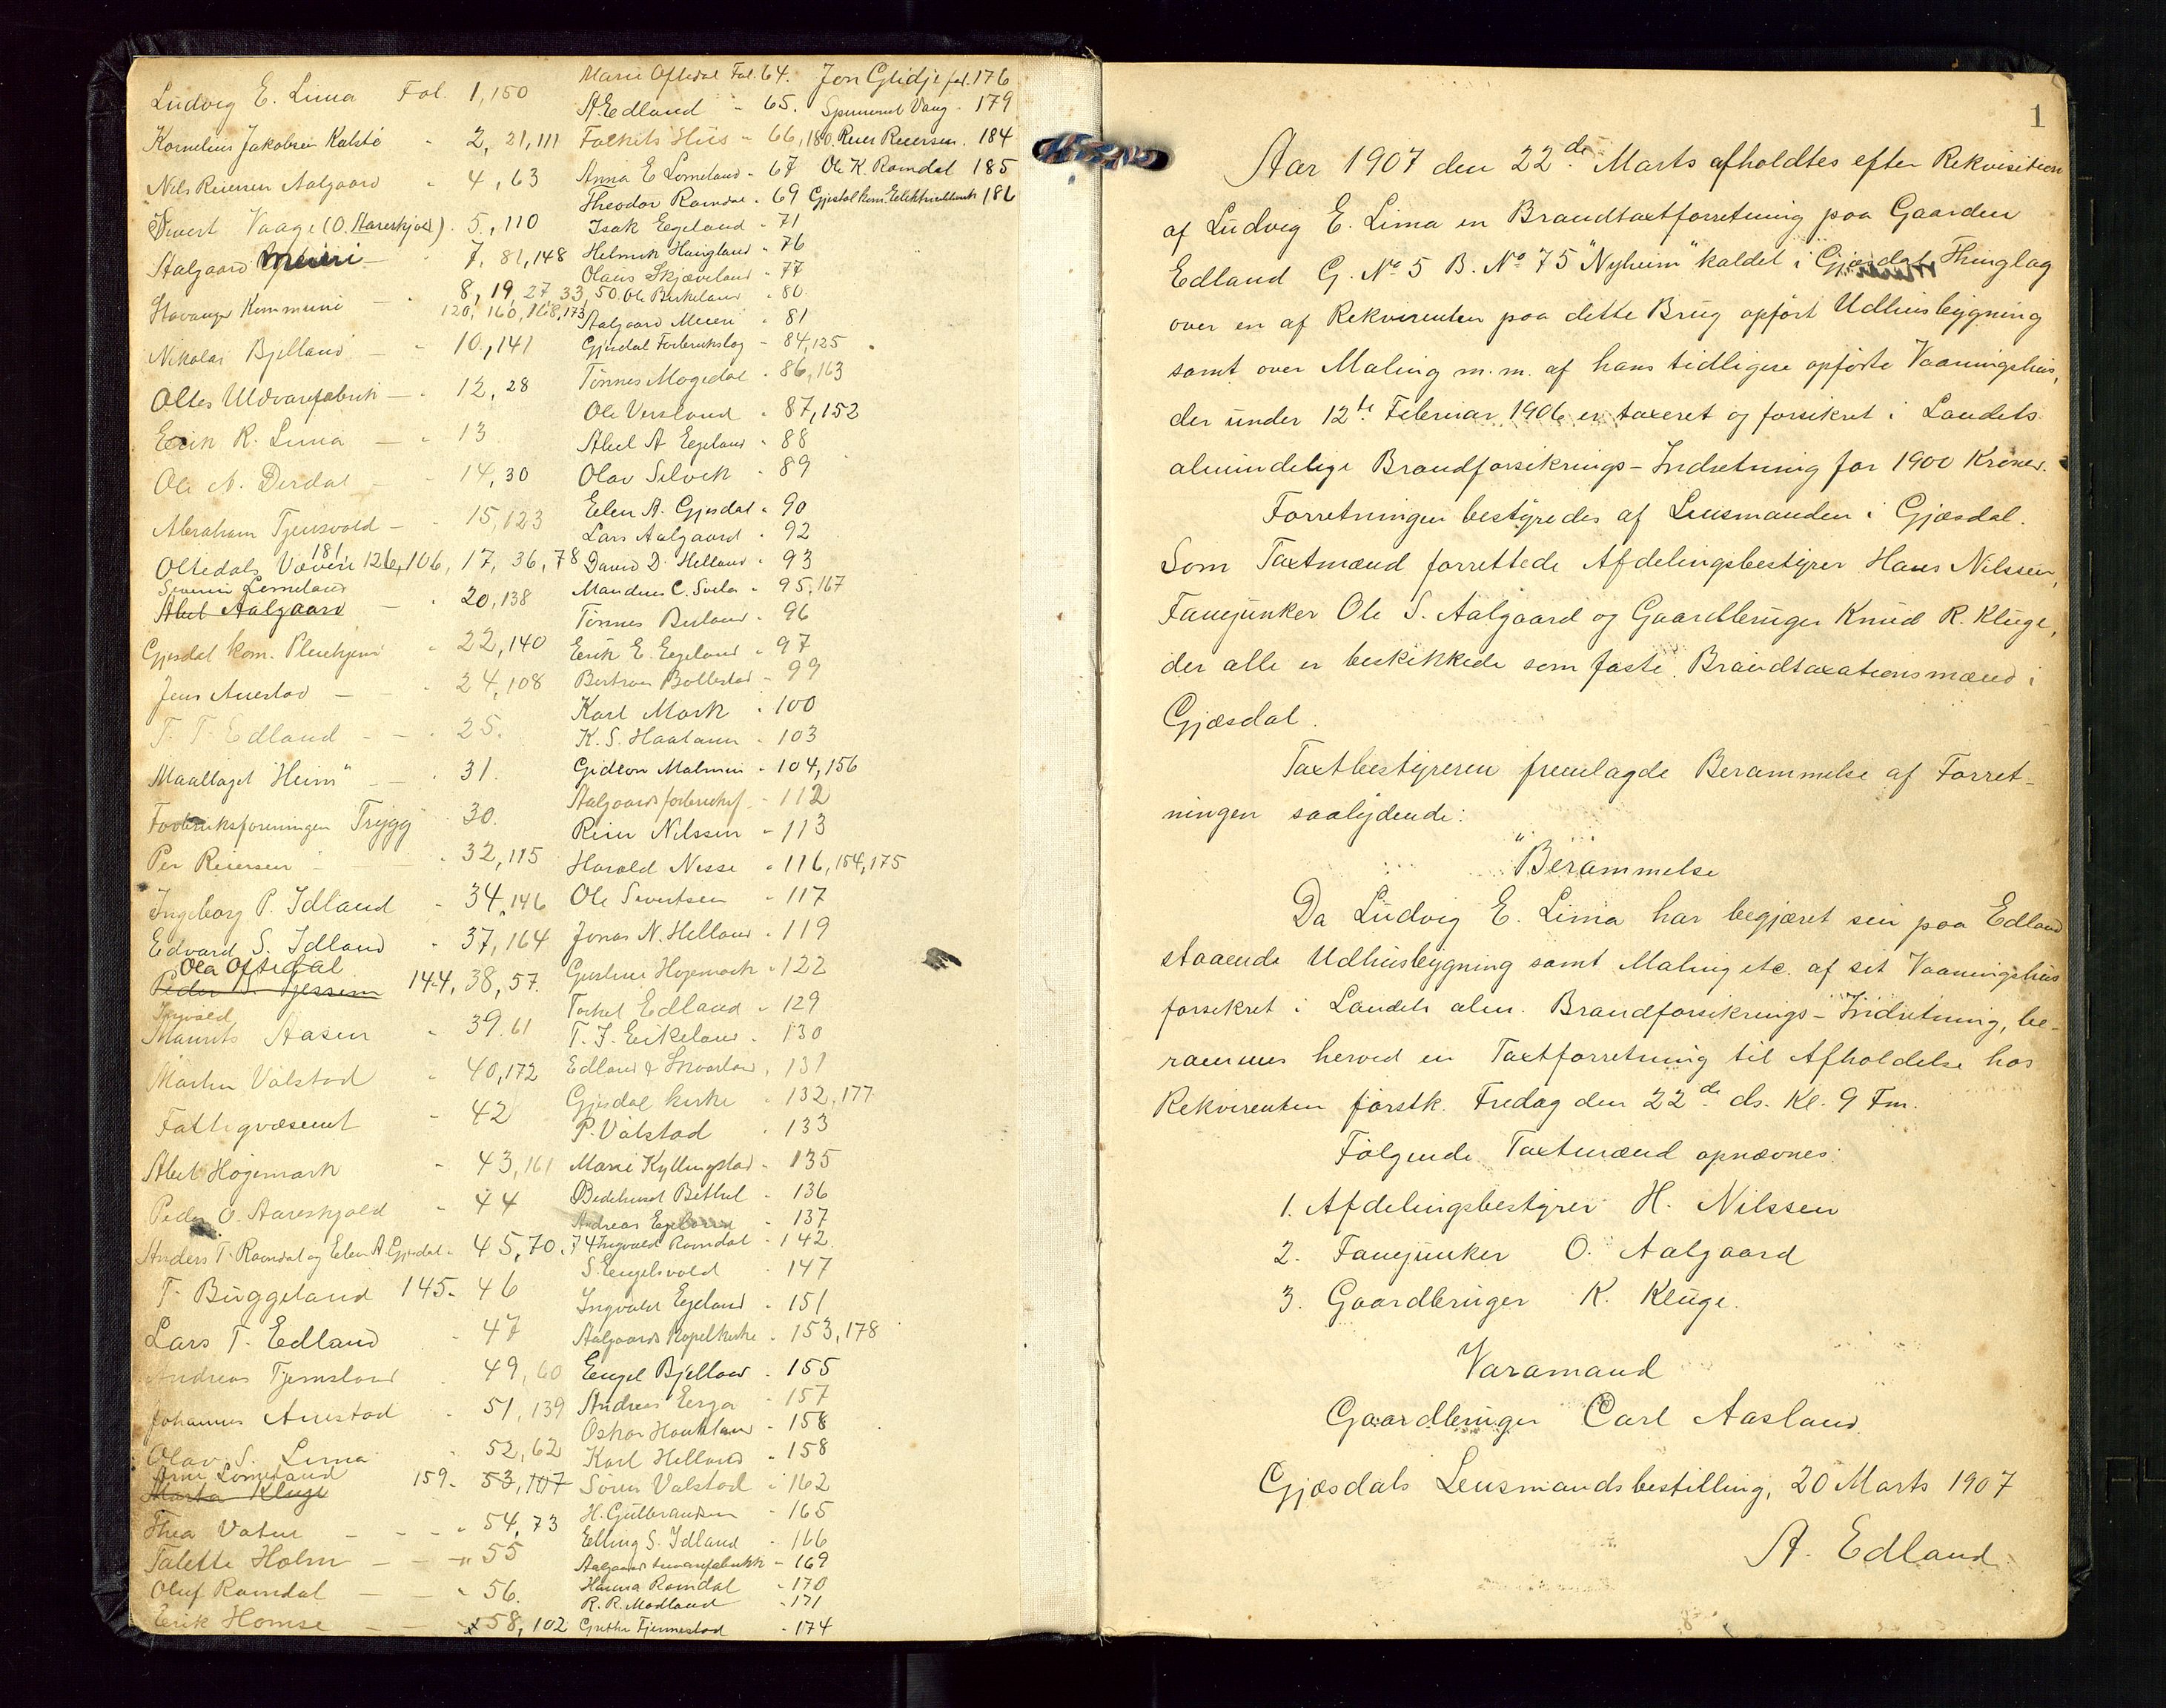 Ludvig E. Lima Fol. 1,150
Kornelius Jakobsen Kalstø - 2, 21, 111
Nils Reiersen Aalgaard - 4, 63
Sivert Vaage (O. Aareskjold) - 5, 110
Aalgaard Meieri - 7, 81, 148
Stavanger Kommune - 8, 19, 27, 33, 50.
120, 160, 168, 173
Nikolai Bjelland - 10, 141
Oltes Uldvarefabrik - 12, 28
Erik R. Lima - 13
Ole N. Dirdal - 14, 30
Abraham Tjensvold - 15, 123
Oltedals Væveri 181, 126, 106, 17, 36, 78
Severin Lomeland
Abel Aalgaard - 20, 138
Gjesdal kom. Pleiehjem - 22, 140
Jens Auestad - 24, 108
T. T. Edland - 25.
Maallaget "Heim" - 31.
Forbruksforeningen Trygg 30.
Per Reiersen - 32, 115
Ingeborg P. Idland - 34, 146
Edvard S. Idland - 37, 164
Ola Oftedal
Peder 144, 38, 57.
Ingvald
Maurits Aasen - 39, 61
Martin Valstad - 40, 172
Fattigvæsenet - 42
Abel Høgemark - 43, 161
Peder O. Aareskjold - 44
Anders T. Ravndal og Elen A. Gjesdal - 45, 70, 74
T. Buggeland 145 - 46
Lars T. Edland - 47
Andreas Tjemsland - 49, 60
Johannes Auestad - 51, 139
Olav S. Lima - 52, 62
Arne Lomeland
Marta Kluge 159 - 53, 107
Thea Vatne - 54, 73
Talette Holm - " 55
Oluf Ravndal - 56.
Erik Homse - x 58, 102
Marie Oftedal Fol. 64.
A. Edland - 65.
Folkets Hus - 66, 180.
Anna E Lomeland - 67
Theodor Ravndal - 69
Isak Egeland - 71
Helmik Haugland - 76
Olaus Skjæveland - 77
Ole Birkeland - 80
Aalgaard Meieri - 81
Gjesdal Forbrukslag - 84, 125
Tønnes Mogedal - 86, 163
Ole Versland - 87, 152
Abel A Egeland - 88
Olav Selvik - 89
Elen A. Gjesdal - 90
Lars Aalgaard - 92
David D. Helland - 93
Mandius C. Svela - 95, 167
Tønnes Birland - 96
Erik E. Egeland - 97
Bertran Bollestad - 99
Karl Mork - 100
K. S. Haaland - 103
Gideon Malmin - 104, 156
Aalgaards forbruksf. - 112
Reier Nilssen - 113
Harald Nesse - 116, 154, 175
Ole Sivertsen - 117
Jonas N. Helland - 119
Gustine Høgemark - 122
Torkel Edland - 129
T. J. Eikeland - 130
Edland & Skurland, 131
Gjesdal kirke - 132, 177
P. Valstad - 133
Marie Kyllingstad - 135
Bedehuset Bethel - 136
Andreas Egeland - 137
Ingvald Ravndal - 142
S. Engelsvold - 147
Ingvald Egeland - 151
Aalgaards Kapelkirke - 153, 178
Engel Bjelland - 155
Andreas Erga - 157
Oskar Haukland - 158
Karl Helland - 158
Søren Valstad - 162
H. Gulbrandsen - 165
Elling S. Idland - 166
Aalgaards - 169
Hanna Ravndal - 170
R. R. Madland - 171
Grethe Fjermestad - 174
Jon Glidje fol. 176
Vaag - 179
Reier Reiersen - 184
Ole K. Ravndal 185
Gjestal kom. Elektrisitetsverk 186
1
Aar 1907 den 22de Marts afholdtes efter Rekvisition
af Ludvig E. Lima en Brandtaxtforretning paa Gaarden
Edland G. No 5 B. No 75 "Nyheim" kaldet i Gjæsdal Thinglag
over en af Rekvirenten paa dette Brug opført Udhusbygning
samt over Maling m.m. af hans tidligere opførte Vaaningshus,
der under 12te Februar 1906 er taxeret og forsikret i Landets
almindelige Brandforsikrings-Indretning for 1900 Kroner.
Forretningen bestyredes af Lensmanden i Gjæsdal.
Som Taxtmænd forrettede Afdelingsbestyrer Hans Nilssen,
Fanejunker Ole S. Aalgaard og Gaardbruger Knud R. Kluge,
der alle er beskikkede som faste Brandtaxationsmænd i
Gjæsdal.
Taxtbestyreren fremlagde Berammelse af Forret-
ningen saalydende:
"Berammelse
Da Ludvig E. Lima har begjæret sin paa Edland
staaende Udhusbygning samt Maling etc. af sit Vaaningshus
forsikret i Landets alm. Brandforsikrings-Indretning, be-
rammes herved en Taxtforretning til Afholdelse hos
Rekvirenten førstk. Fredag den 22de ds. Kl. 9 Fm.
Følgende Taxtmænd opnævnes:
1. Afdelingsbestyrer H. Nilssen
2. Fanejunker O. Aalgaard
3. Gaardbruger K. Kluge.
Varamand
Gaardbruger Carl Aasland.
Gjæsdals Lensmandsbestilling, 20 Marts 1907
A. Edland